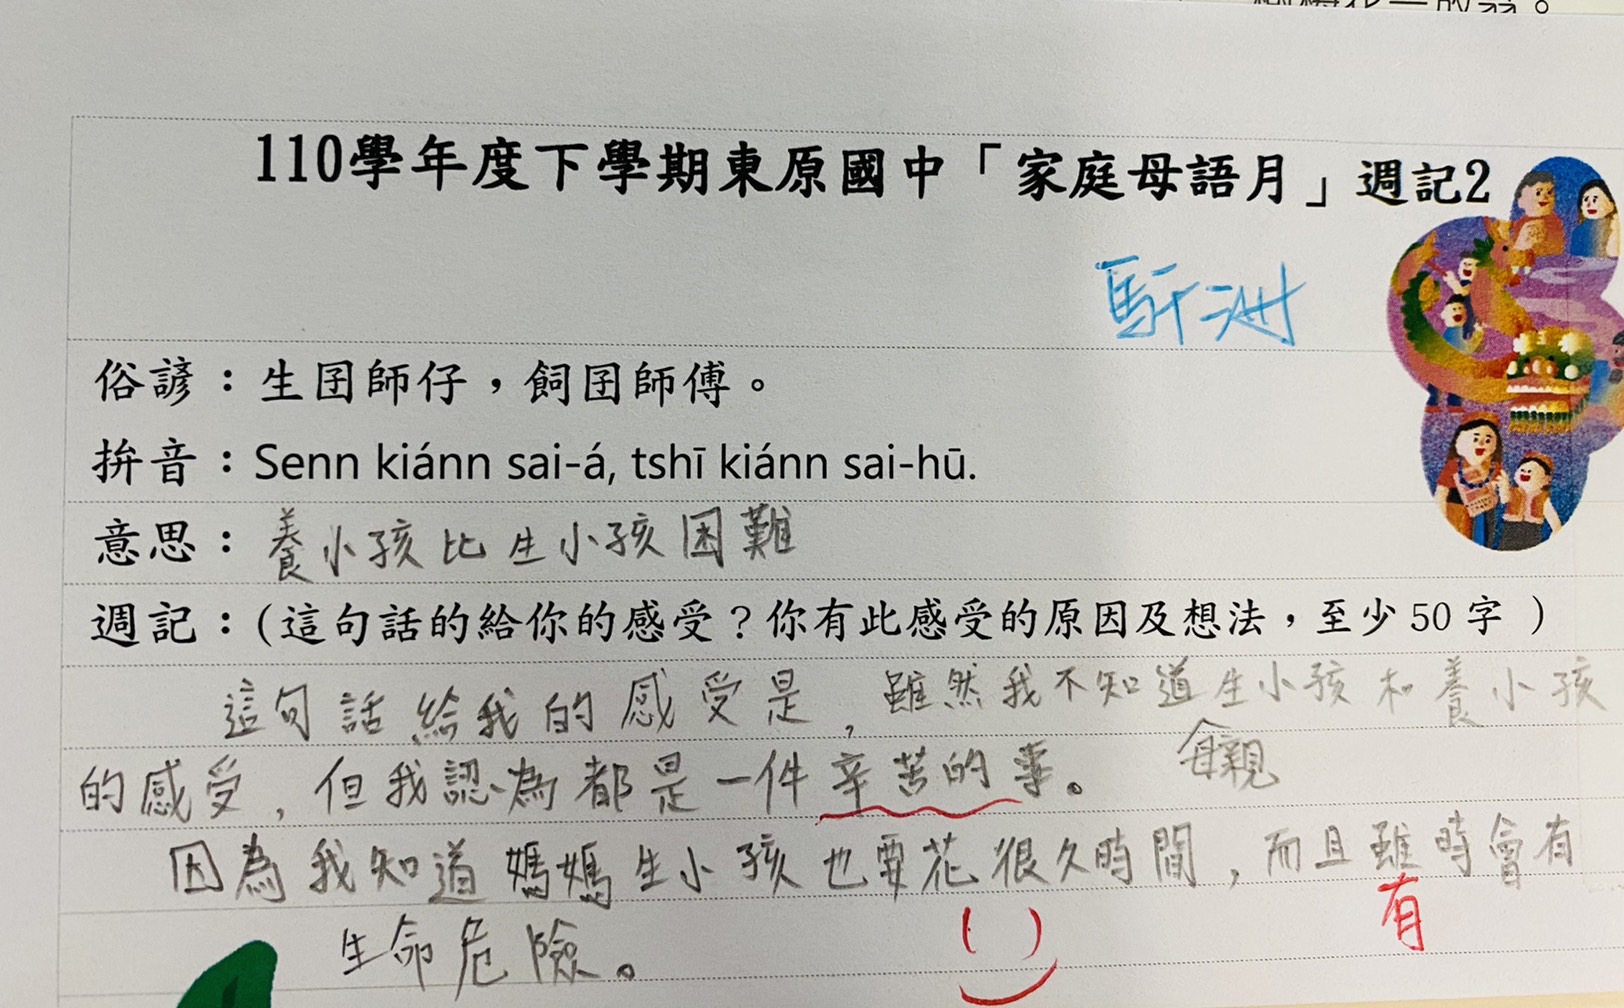 110學年度下學期東原國中「家庭母語月」週記2
俗諺：生囝師仔，飼囝師傅。
拚音：Senn kiánn sai-á, tshī kiánn sai-hū.
意思：養小孩比生小孩困難
週記：(這句話的給你的感受？你有此感受的原因及想法，至少50字 )
這句話給我的感受是，雖然我不知道生小孩和養小孩
的感受，但我認為都是一件辛苦的事。 母親
因為我知道媽媽生小孩也要花很久時間，而且雖時會有
有
生命危險。